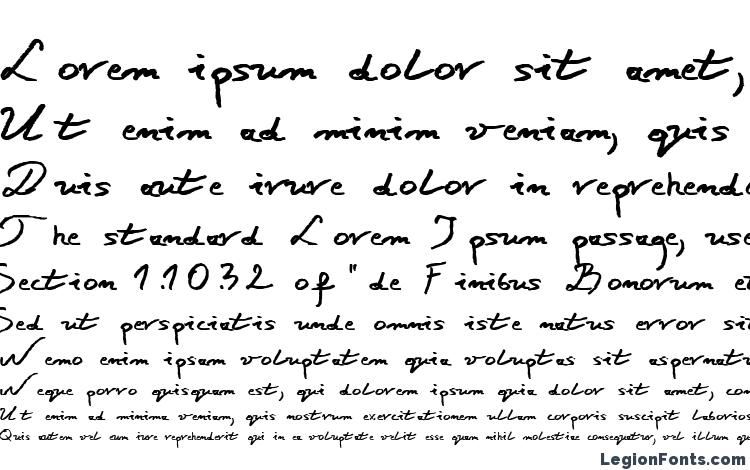 Lorem ipsum dolor sit amet,
Ut enim ad minim veniam, quis
Duis aute irure dolor in reprehende
The standard Lorem Ipsum passage, use
Section 1.10.32 of "de Finibus Bonorum et
Sed ut perspiciatis unde omnis iste natus error sit
Nemo enim ipsam voluptatem quia voluptas sit aspernatu
Neque porro quisquam est, qui dolorem ipsum quia dolor sit amet, con
Ut enim ad minima veniam, quis nostrum exercitationem ullam corporis suscipit laborios
Quis autem vel eum iure reprehenderit qui in ea voluptate velit esse quam nihil molestiae consequatur, vel illum qu
LegionFonts.com